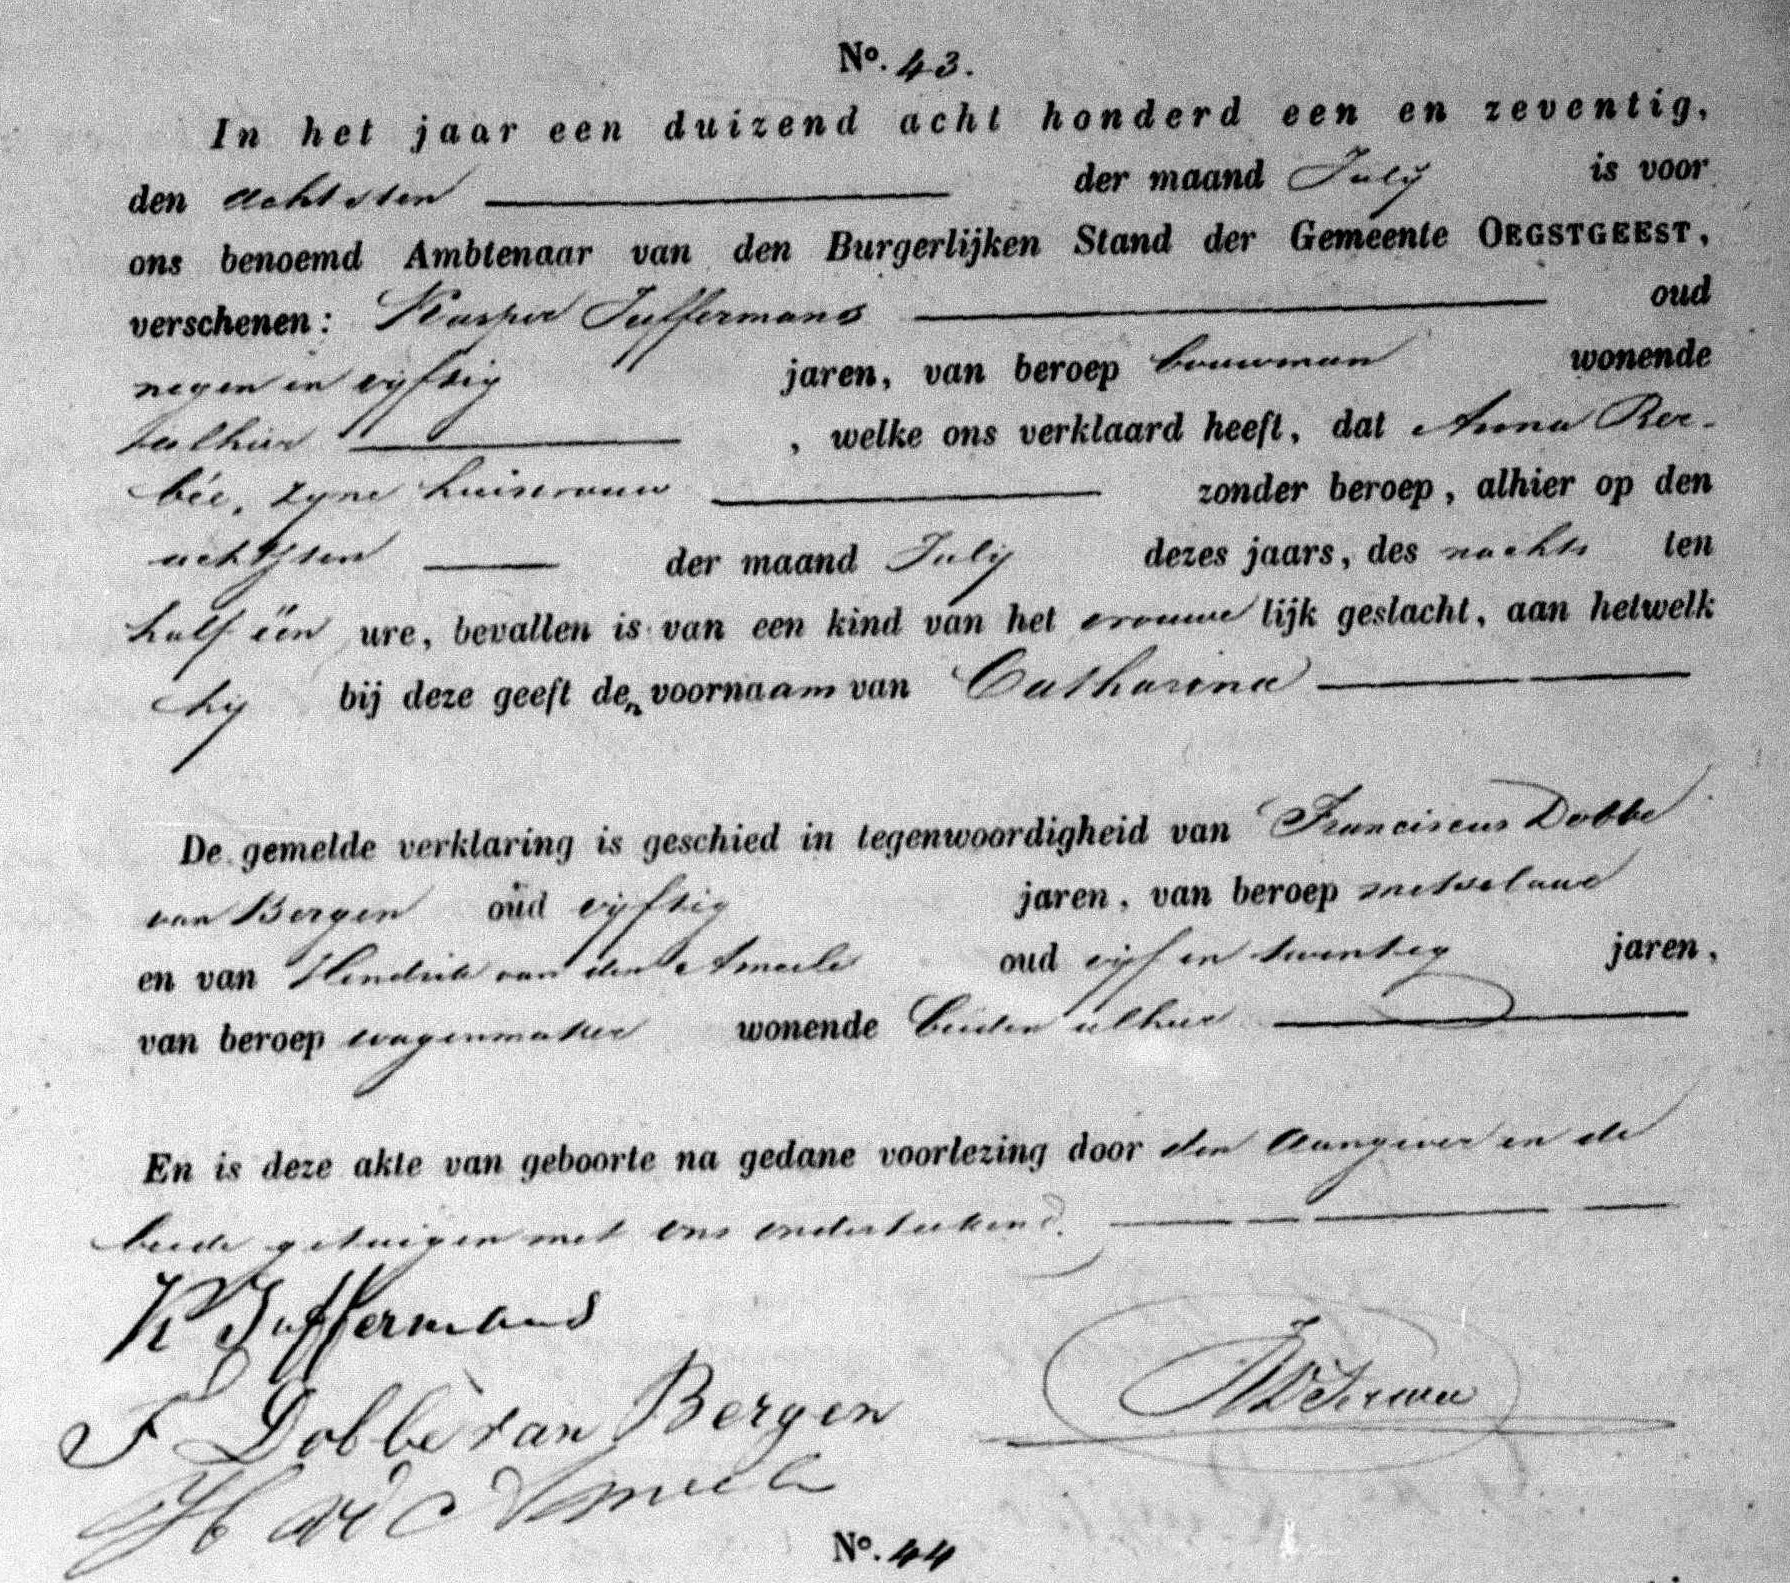 No. 43.
In het jaar een duizend acht honderd een en zeventig,
den achtsten der maand July is voor
ons benoemd Ambtenaar van den Burgerlijken Stand der Gemeente OEGSTGEEST,
verschenen: Kasper Juffermans oud
negen en vyftig jaren, van beroep bouwman wonende
alhier , welke ons verklaard heeft, dat Anna Ber-
bée, zyne huisvrouw zonder beroep, alhier op den
achtsten der maand July dezes jaars, des nachts ten
half één ure, bevallen is van een kind van het vrouwelijk geslacht, aan hetwelk
hy bij deze geeft den voornaam van Catharina
De gemelde verklaring is geschied in tegenwoordigheid van Franciscus Dobbe
van Bergen oud vyftig jaren, van beroep metselaar
en van Hendrik van der Ameele oud vyf en twintig jaren,
van beroep wagenmaker wonende beiden alhier
En is deze akte van geboorte na gedane voorlezing door den aangever en de
beide getuigen met ons onderteekend.
K Juffermans
F Dobbe van Bergen
H vd Ameele
No. 44